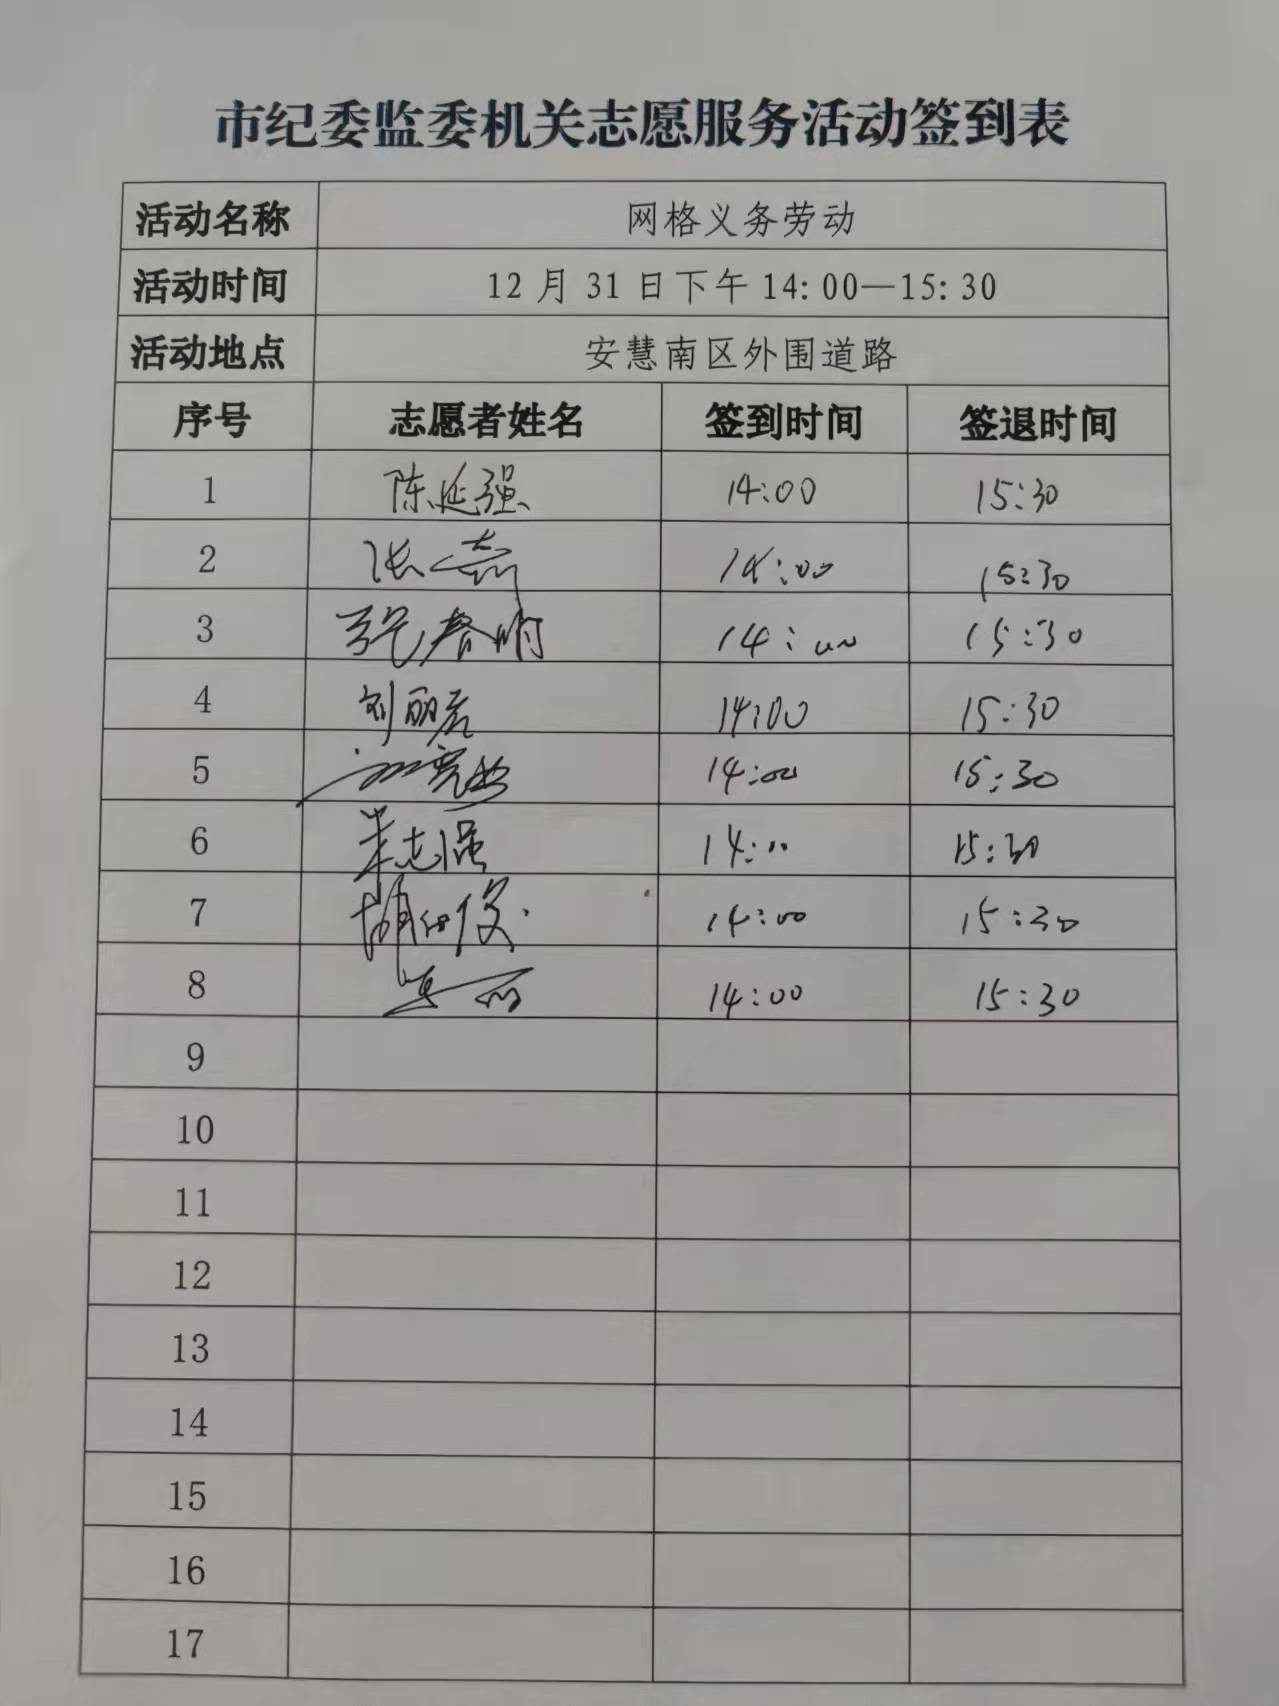 市纪委监委机关志愿服务活动签到表
活动名称 网格义务劳动
活动时间 12月31日下午14:00—15:30
活动地点 安慧南区外围道路
序号 志愿者姓名 签到时间 签退时间
1 陈延强 14:00 15:30
2 张 14:00 15:30
3 张春明 14:00 15:30
4 刘丽君 14:00 15:30
5 14:00 15:30
6 朱志强 14:00 15:30
7 14:00 15:30
8 14:00 15:30
9
10
11
12
13
14
15
16
17